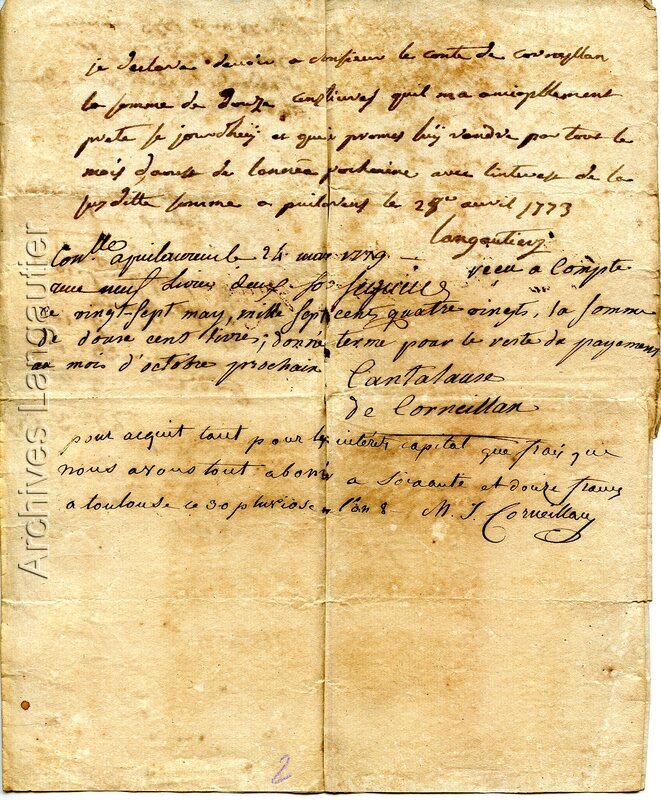 je declare devoir a monsieur le conte de corneyllan
la somme de douze cens livres quil ma amicallement
prete se jourdhuy et que promes luy rendre par tout le
mois daoust de lannée prochaine avec linterest de la
susditte somme a puilavrens le 25e avril 1773
langautier
Conlle apuilaurens le 24 mar 1779
neuf livres deux s
receu a Compte
ce vingt-sept may, mille sept cens quatre vingts, la somme
de douse cent livres, donné terme pour le reste du payement
au mois d'octobre prochain
Cantalause
de Corneillan
pour acquit tant pour les intérêts capital que frais que
nous avons tout abonné a soixante et douze francs
a toulouse ce 30 pluviose l'an 8 M. J. Corneillan
Archives Langautier
2